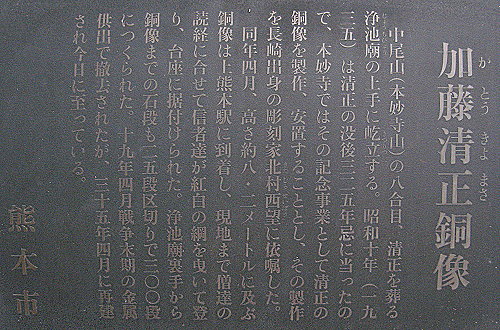 加藤清正銅像
か とう きよ まさ
中尾山(本妙寺山)の八合目、清正を葬る
浄池廟の上手に屹立する。昭和十年(一九
三五)は清正の没後三二五年忌に当ったの
で、本妙寺ではその記念事業として清正の
銅像を製作、安置することとし、その製作
を長崎出身の彫刻家北村西望に依嘱した。
同年四月、高さ約八・二メートルに及ぶ
銅像は上熊本駅に到着し、現地まで僧達の
読経に合せて信者達が紅白の綱を曳いて登
り、台座に据付けられた。浄池廟裏手から
銅像までの石段も二五段区切りで三〇〇段
につくられた。十九年四月戦争末期の金属
供出で撤去されたが、三十五年四月に再建
され今日に至っている。
熊本市